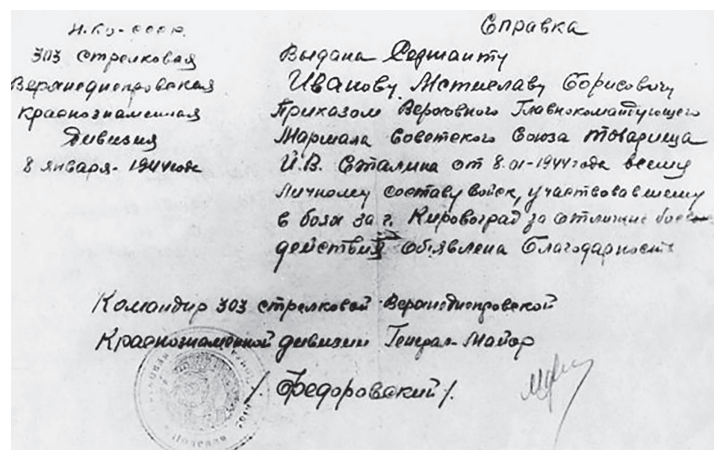 Н.КО-СССР.
303 стрелковая
Верхнеднепровская
краснознаменная
Дивизия
8 января - 1944 года
Справка
Выдана Сержанту
Иванову Мстиславу Борисовичу
Приказом Верховного Главнокомандующего
Маршала Советского Союза товарища
И.В. Сталина от 8.01-1944 года всему
личному составу войск, участвовавшему
в боях за г. Кировоград за отличные боев
действия объявлена благодарность
Командир 303 стрелковой Верхнеднепровской
Краснознаменной дивизии Генерал-Майор
/. Федоровский /.